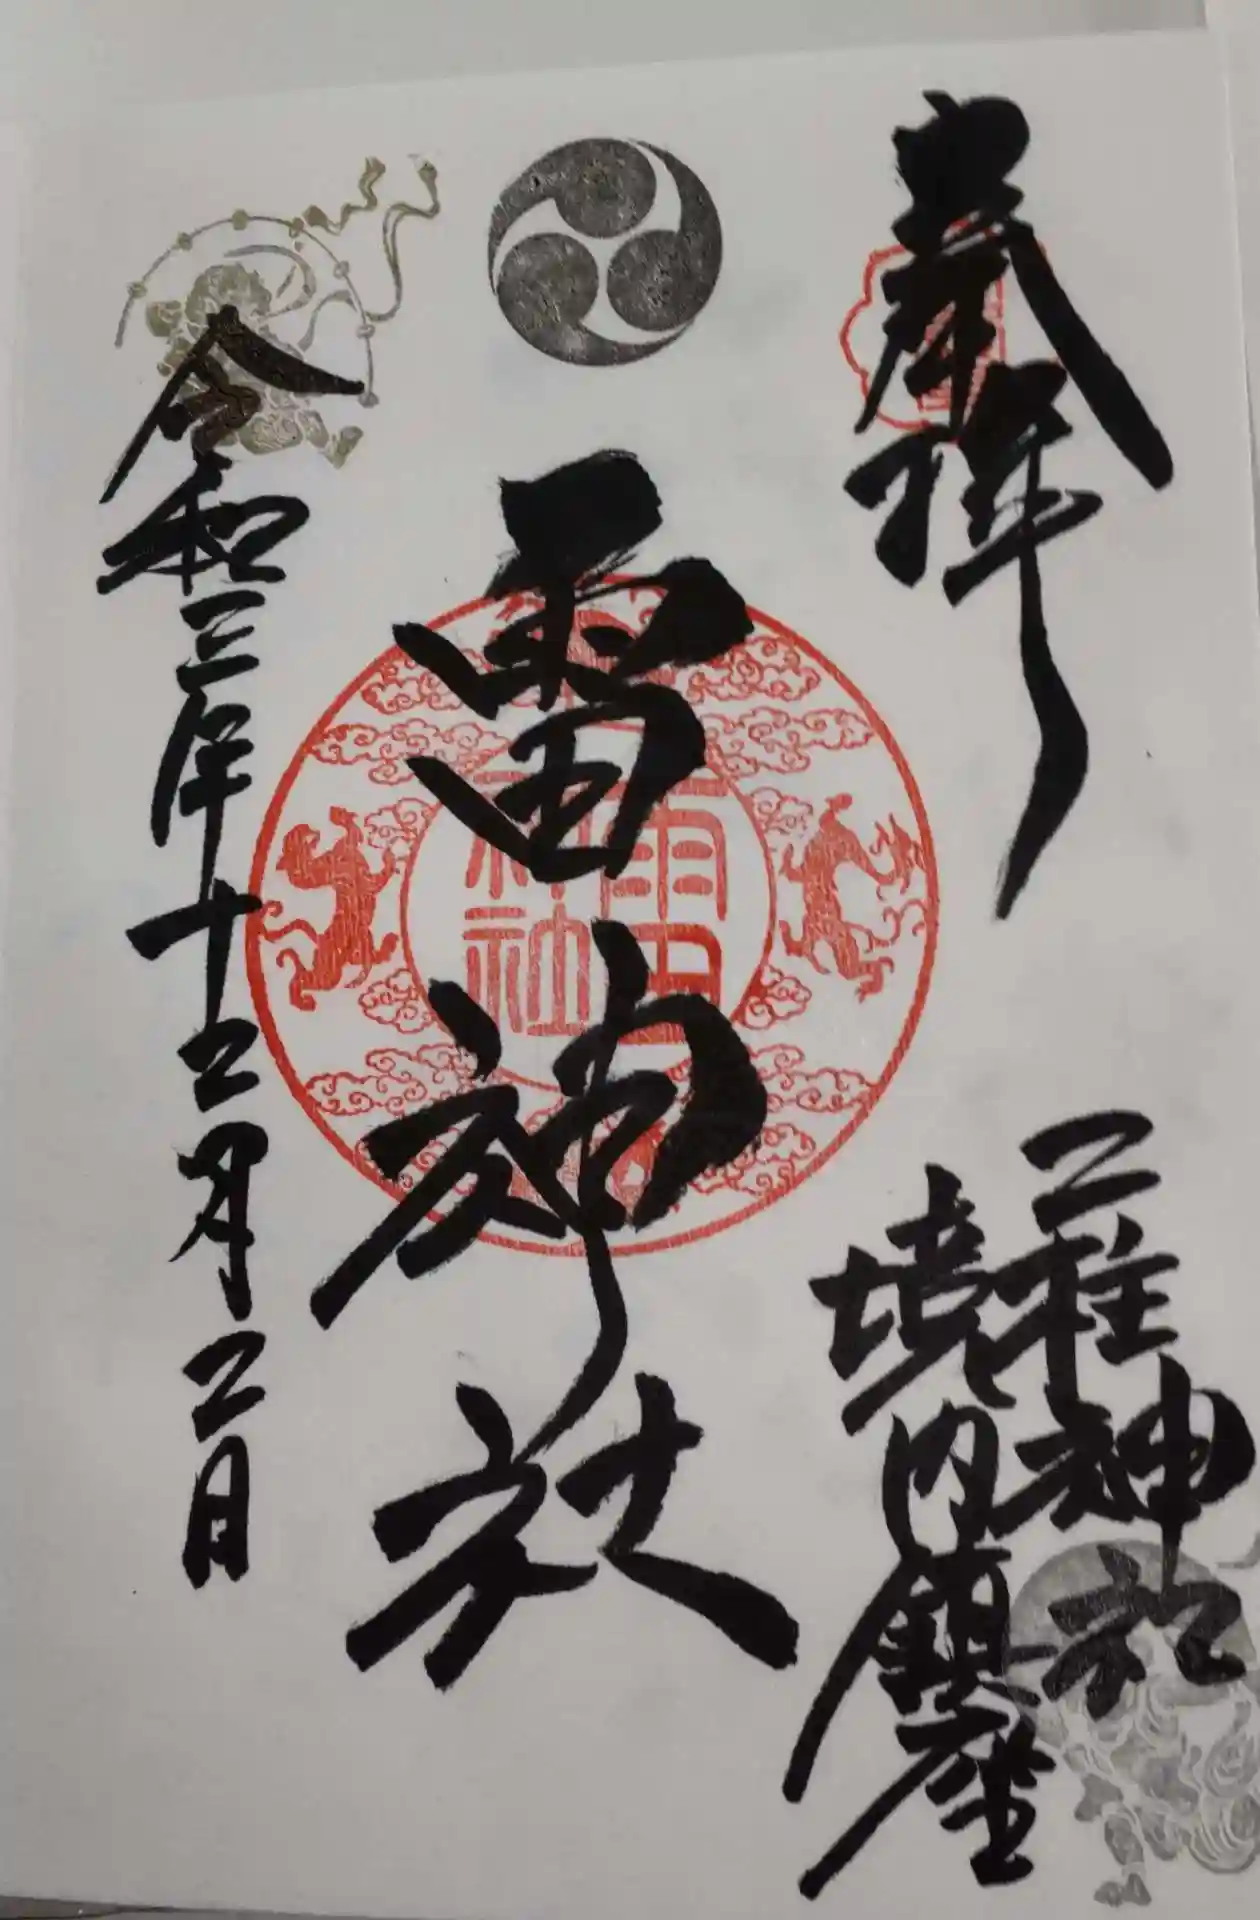 奉拝
二柱神社
境内鎮座
雷神社
雷神社
令和三年十二月二日